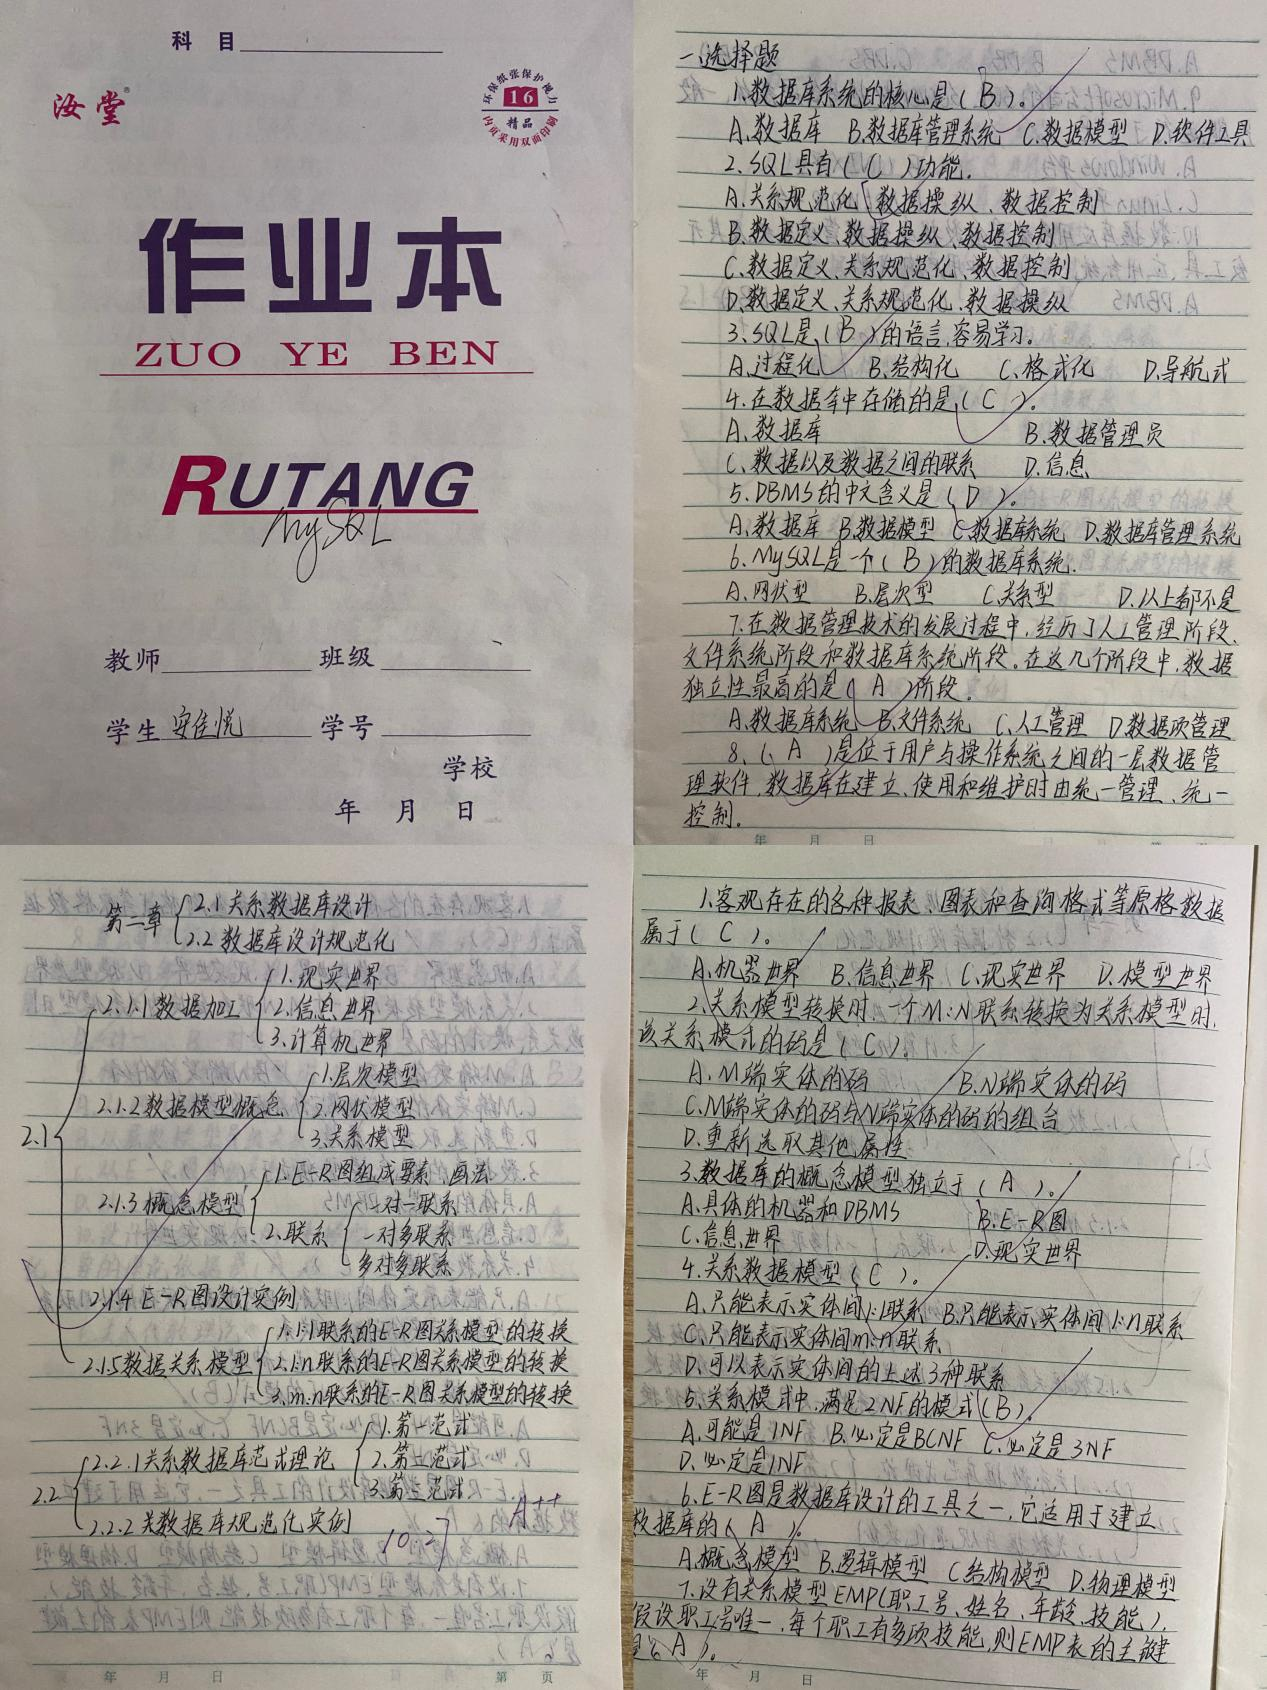 科 目
汝 堂
环保纸张保护视力
16
精品
内页采用双面印刷
作业本
ZUO YE BEN
RUTANG
MySQL
教师 班级
学生 安佳悦 学号
学校
年 月 日
一、选择题
1.数据库系统的核心是( B )。
A.数据库 B.数据库管理系统 C.数据模型 D.软件工具
2.SQL具有( C )功能.
A.关系规范化、数据操纵、数据控制
B.数据定义、数据操纵、数据控制
C.数据定义、关系规范化、数据控制
D.数据定义、关系规范化、数据操纵
3.SQL是( B )的语言,容易学习。
A.过程化 B.结构化 C.格式化 D.导航式
4.在数据库中存储的是( C )。
A.数据库 B.数据管理员
C.数据以及数据之间的联系 D.信息
5.DBMS的中文含义是( D )。
A.数据库 B.数据模型 C.数据库系统 D.数据库管理系统
6.MySQL是一个( B )的数据库系统.
A.网状型 B.层次型 C.关系型 D.以上都不是
7.在数据管理技术的发展过程中,经历了人工管理阶段、
文件系统阶段和数据库系统阶段。在这几个阶段中,数据
独立性最高的是( A )阶段。
A.数据库系统 B.文件系统 C.人工管理 D.数据项管理
8.( A )是位于用户与操作系统之间的一层数据管
理软件,数据库在建立、使用和维护时由统一管理、统一
控制.
年 月 日
第二章 2.1关系数据库设计
2.2数据库设计规范化
2.1
2.1.1数据加工
1.现实世界
2.信息世界
3.计算机世界
2.1.2数据模型概念
1.层次模型
2.网状模型
3.关系模型
2.1.3概念模型
1.E-R图组成要素,画法
2.联系
一对一联系
一对多联系
多对多联系
2.1.4 E-R图设计实例
2.1.5数据关系模型
1.1:1联系的E-R图关系模型的转换
2.1:n联系的E-R图关系模型的转换
3.m:n联系的E-R图关系模型的转换
2.2
2.2.1关系数据库范式理论
1.第一范式
2.第二范式
3.第三范式
2.2.2关数据库规范化实例
10.27 A++
年 月 日 第 页
1.客观存在的各种报表、图表和查询格式等原格数据
属于( C )。
A.机器世界 B.信息世界 C.现实世界 D.模型世界
2.关系模型转换时,一个M:N联系转换为关系模型时,
该关系模式的码是( C )。
A.M端实体的码 B.N端实体的码
C.M端实体的码与N端实体的码的组合
D.重新选取其他属性
3.数据库的概念模型独立于( A )。
A.具体的机器和DBMS B.E-R图
C.信息世界 D.现实世界
4.关系数据模型( C )。
A.只能表示实体间1:1联系 B.只能表示实体间1:n联系
C.只能表示实体间m:n联系
D.可以表示实体间的上述3种联系
5.关系模式中,满足2NF的模式(B)。
A.可能是1NF B.必定是BCNF C.必定是3NF
D.必定是1NF
6.E-R图是数据库设计的工具之一,它适用于建立
数据库的( A )。
A.概念模型 B.逻辑模型 C.结构模型 D.物理模型
7.设有关系模型EMP(职工号、姓名、年龄、技能),
假设职工号唯一,每个职工有多项技能,则EMP表的主键
是( A )。
年 月 日